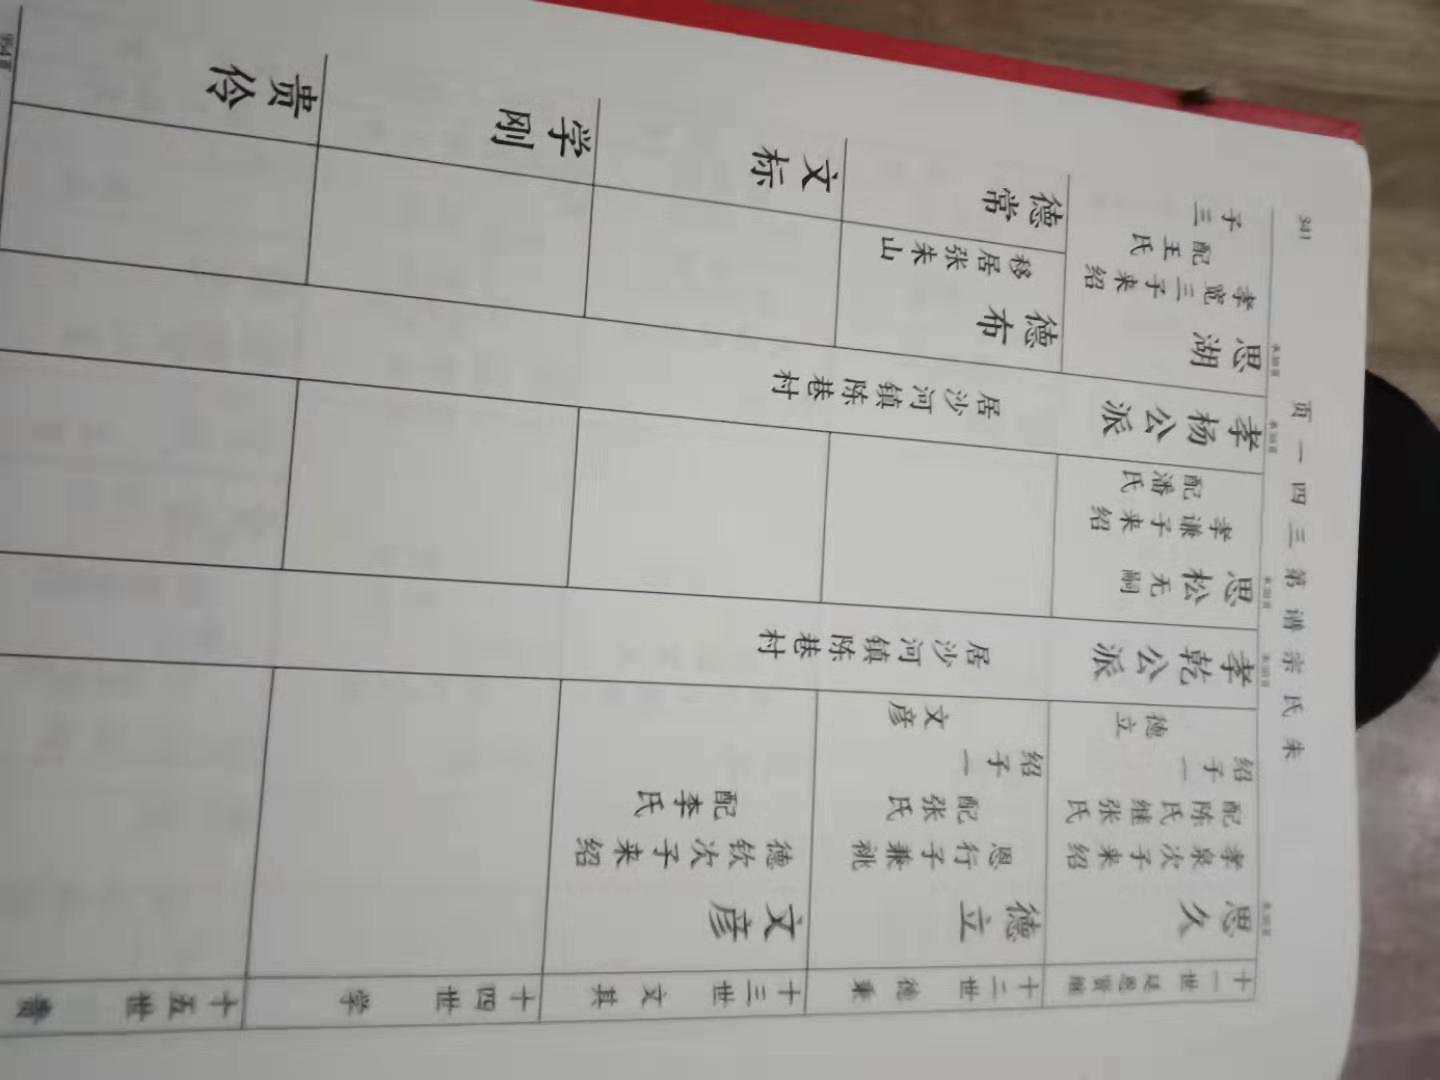 朱氏宗谱第三四一页
341
十一世
思久
孝泉次子来绍
配陈氏继张氏
绍子一
德立
孝乾公派
居沙河镇陈巷村
思松
无嗣
孝谦子来绍
配潘氏
孝杨公派
居沙河镇陈巷村
思湖
孝宽三子来绍
配王氏
子三
十二世 德秉
德立
恩行子兼祧
配张氏
绍子一
文彦
德布
移居张朱山
德常
十三世 文其
文彦
德钦次子来绍
配李氏
文标
十四世 学
学刚
十五世 贵
贵伶